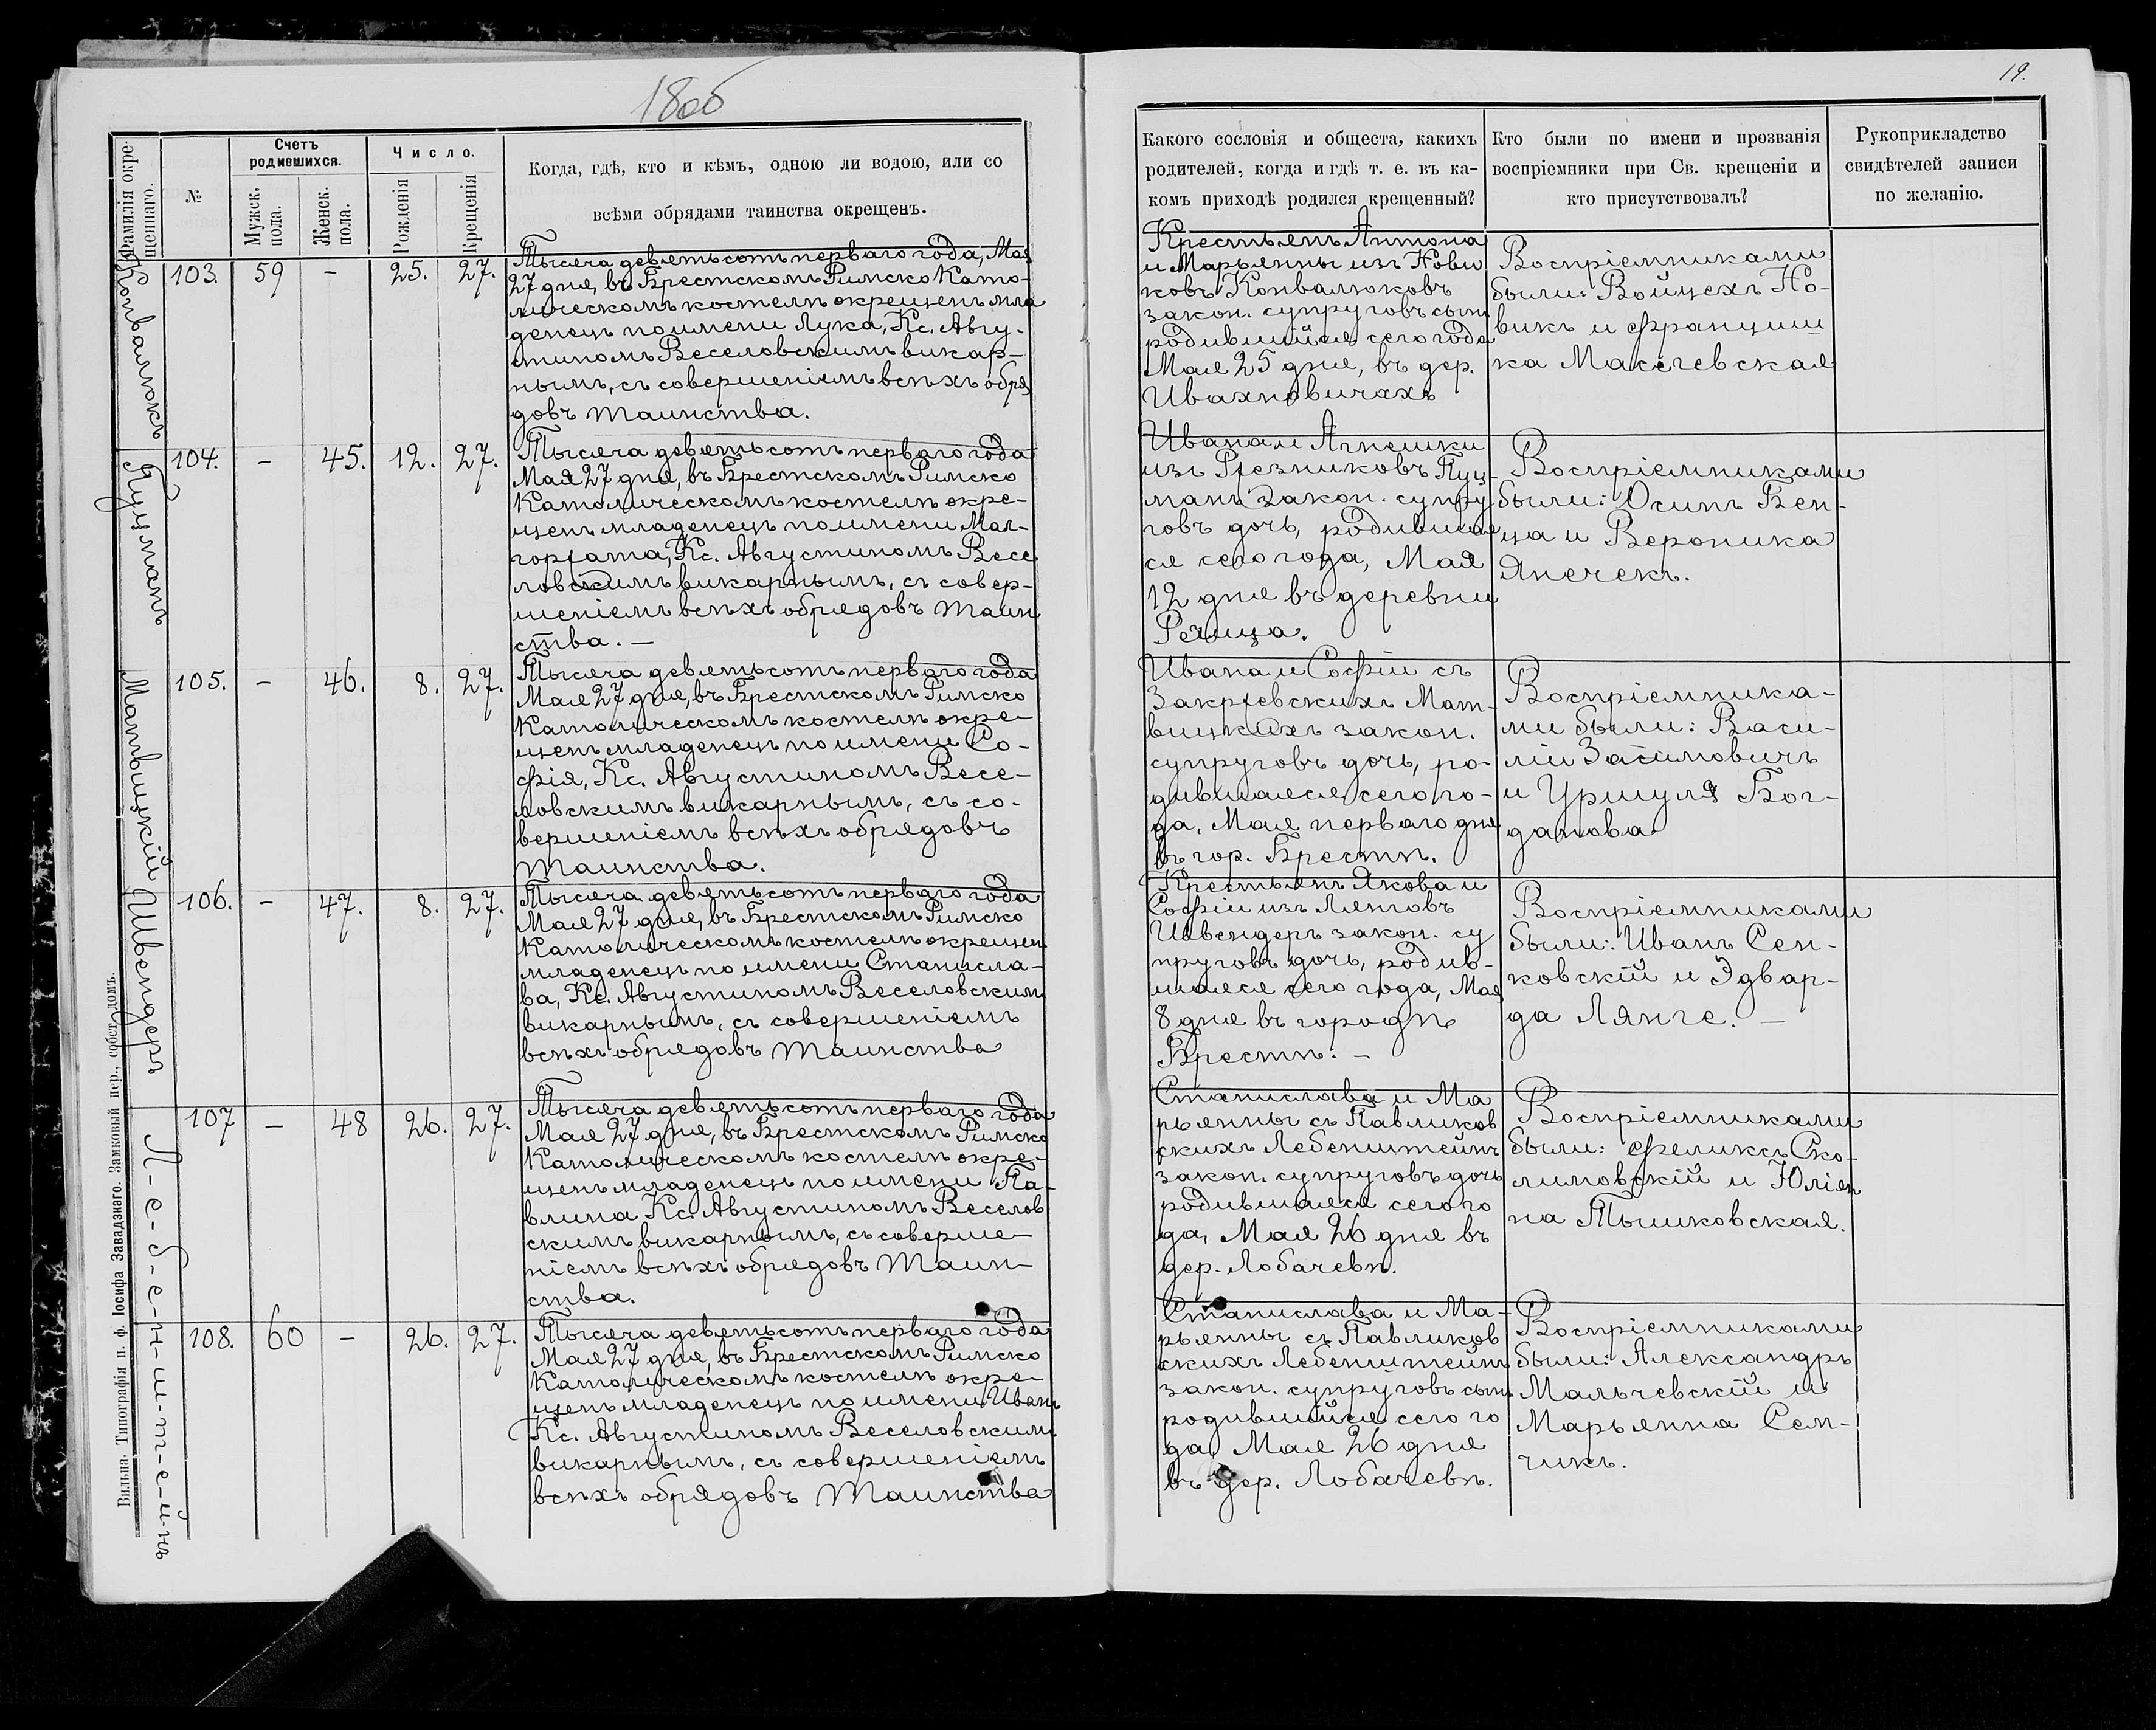 1866
19.
Фамилія окре-
щеннаго.
№
Счетъ
родившихся.
Мужск.
пола.
Женск.
пола.
Число.
Рожденія
Крещенія
Когда, гдѣ, кто и кѣмъ, одною ли водою, или со
всѣми обрядами таинства окрещенъ.
Какого сословія и общества, какихъ
родителей, когда и гдѣ т. е. въ ка-
комъ приходѣ родился крещенный?
Кто были по имени и прозванія
воспріемники при Св. крещеніи и
кто присутствовалъ?
Рукоприкладство
свидѣтелей записи
по желанію.
Конвалюкъ
103. 59 – 25. 27.
Тысяча девятьсотъ перваго года, Мая
27 дня, въ Брестскомъ Римско Като-
лическомъ костелѣ окрещенъ мла
денецъ по имени Лука, Кс. Авгу-
стиномъ Веселовскимъ викар-
нымъ, съ совершеніемъ всѣхъ обря
довъ таинства.
Крестьянъ Антона
и Марьянны изъ Нови
ковъ Конвалюковъ
закон. супруговъ сынъ
родившійся сего года
Мая 25 дня, въ дер.
Ивахновичахъ
Воспріемниками
были: Войцехъ Но-
викъ и Францишка
ка Макаевская
Куцманъ
104. – 45. 12. 27.
Тысяча девятьсотъ перваго года
Мая 27 дня, въ Брестскомъ Римско
Католическомъ костелѣ окре-
щенъ младенецъ по имени Мал-
горжата, Кс. Августиномъ Весе
ловскимъ викарнымъ, съ совер-
шеніемъ всѣхъ обрядовъ таин
ства. –
Ивана и Агнешки
изъ Рѣзниковъ Куц-
манъ закон. супру
говъ дочь, родившая
ся сего года, Мая
12 дня въ деревни
Речица.
Воспріемниками
были: Осипъ Вен-
ца и Вероника
Янечекъ.
Матвицкій
105. – 46. 8. 27.
Тысяча девятьсотъ перваго года
Мая 27 дня, въ Брестскомъ Римско
Католическомъ костелѣ окре-
щенъ младенецъ по имени Со-
фія, Кс. Августиномъ Весе-
ловскимъ викарнымъ, съ со-
вершеніемъ всѣхъ обрядовъ
таинства.
Ивана и Софіи съ
Закржевскихъ Мат-
вицкихъ закон.
супруговъ дочь, ро-
дившаяся сего го-
да, Мая перваго дня
въ гор. Брестѣ.
Воспріемника-
ми были: Васи-
лій Засимовичъ
и Уршуля Бог-
данова
Швендеръ
106. – 47. 8. 27.
Тысяча девятьсотъ перваго года
Мая 27 дня, въ Брестскомъ Римско
Католическомъ костелѣ окрещенъ
младенецъ по имени Станисла-
ва, Кс. Августиномъ Веселовскимъ
викарнымъ, съ совершеніемъ
всѣхъ обрядовъ таинства
Крестьянъ Якова и
Софіи изъ Лянговъ
Швендеръ закон. су
пруговъ дочь, родив-
шаяся сего года, Мая
8 дня въ городѣ
Брестѣ. –
Воспріемниками
были: Иванъ Сен-
ковскій и Эдвар-
да Лянге. –
Л-е-б-е-н-ш-т-е-й-нъ
107 – 48 26. 27.
Тысяча девятьсотъ перваго года
Мая 27 дня, въ Брестскомъ Римско
Католическомъ костелѣ окре-
щенъ младенецъ по имени Па-
влина Кс. Августиномъ Веселов
скимъ викарнымъ, съ соверше-
ніемъ всѣхъ обрядовъ таин-
ства.
Станислава и Ма
рьянны съ Павликов
скихъ Лебенштейнъ
закон. супруговъ дочь
родившаяся сего го
да, Мая 26 дня въ
дер. Лобачевѣ.
Воспріемниками
были: Феликсъ Ско-
лимовскій и Юліян
на Тышковская.
108. 60 – 26. 27.
Тысяча девятьсотъ перваго года
Мая 27 дня, въ Брестскомъ Римско
Католическомъ костелѣ окре-
щенъ младенецъ по имени Иванъ
Кс. Августиномъ Веселовскимъ
викарнымъ, съ совершеніемъ
всѣхъ обрядовъ таинства
Станислава и Ма-
рьянны съ Павликов
скихъ Лебенштейнъ
закон. супруговъ сынъ
родившійся сего го
да, Мая 26 дня
въ дер. Лобачевѣ.
Воспріемниками
были: Александръ
Мальчевскій и
Марьянна Сем-
чикъ.
Вильна. Типографія п. ф. Іосифа Завадзкаго. Замковый пер., собст. домъ.